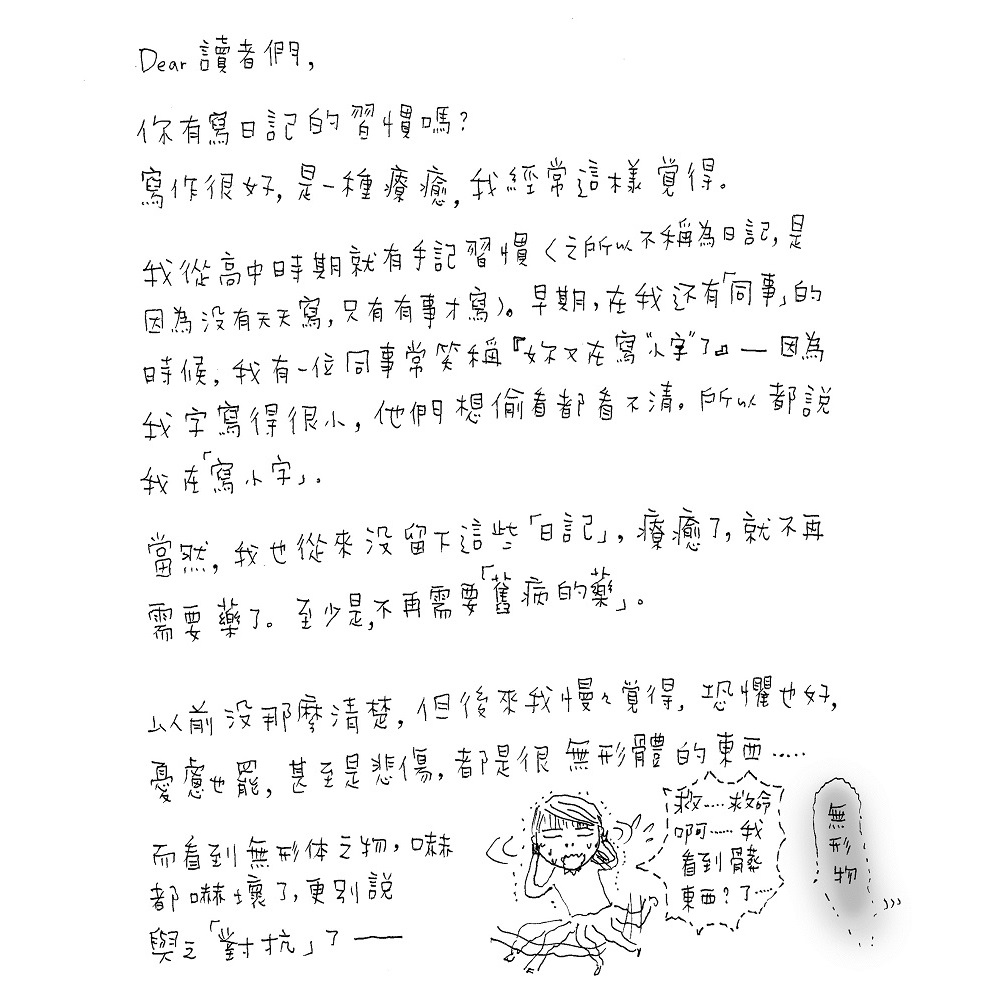 Dear 讀者們,
你有寫日記的習慣嗎?
寫作很好,是一種療癒,我經常這樣覺得。
我從高中時期就有手記習慣(之所以不稱為日記,是
因為沒有天天寫,只有有事才寫)。早期,在我还有「同事」的
時候,我有一位同事常笑稱『妳又在寫"小字"了』— 因為
我字寫得很小,他們想偷看都看不清。所以都說
我在「寫小字」。
當然,我也從來沒留下這些「日記」,療癒了,就不再
需要藥了。至少是,不再需要「舊病的藥」。
以前沒那麼清楚,但後來我慢々覺得,恐懼也好,
憂慮也罷,甚至是悲傷,都是很無形體的東西.....
而看到無形体之物,嚇
都嚇壞了,更別說
與之「對抗」了——
救....救命
啊.... 我
看到髒
東西?了....
無形物